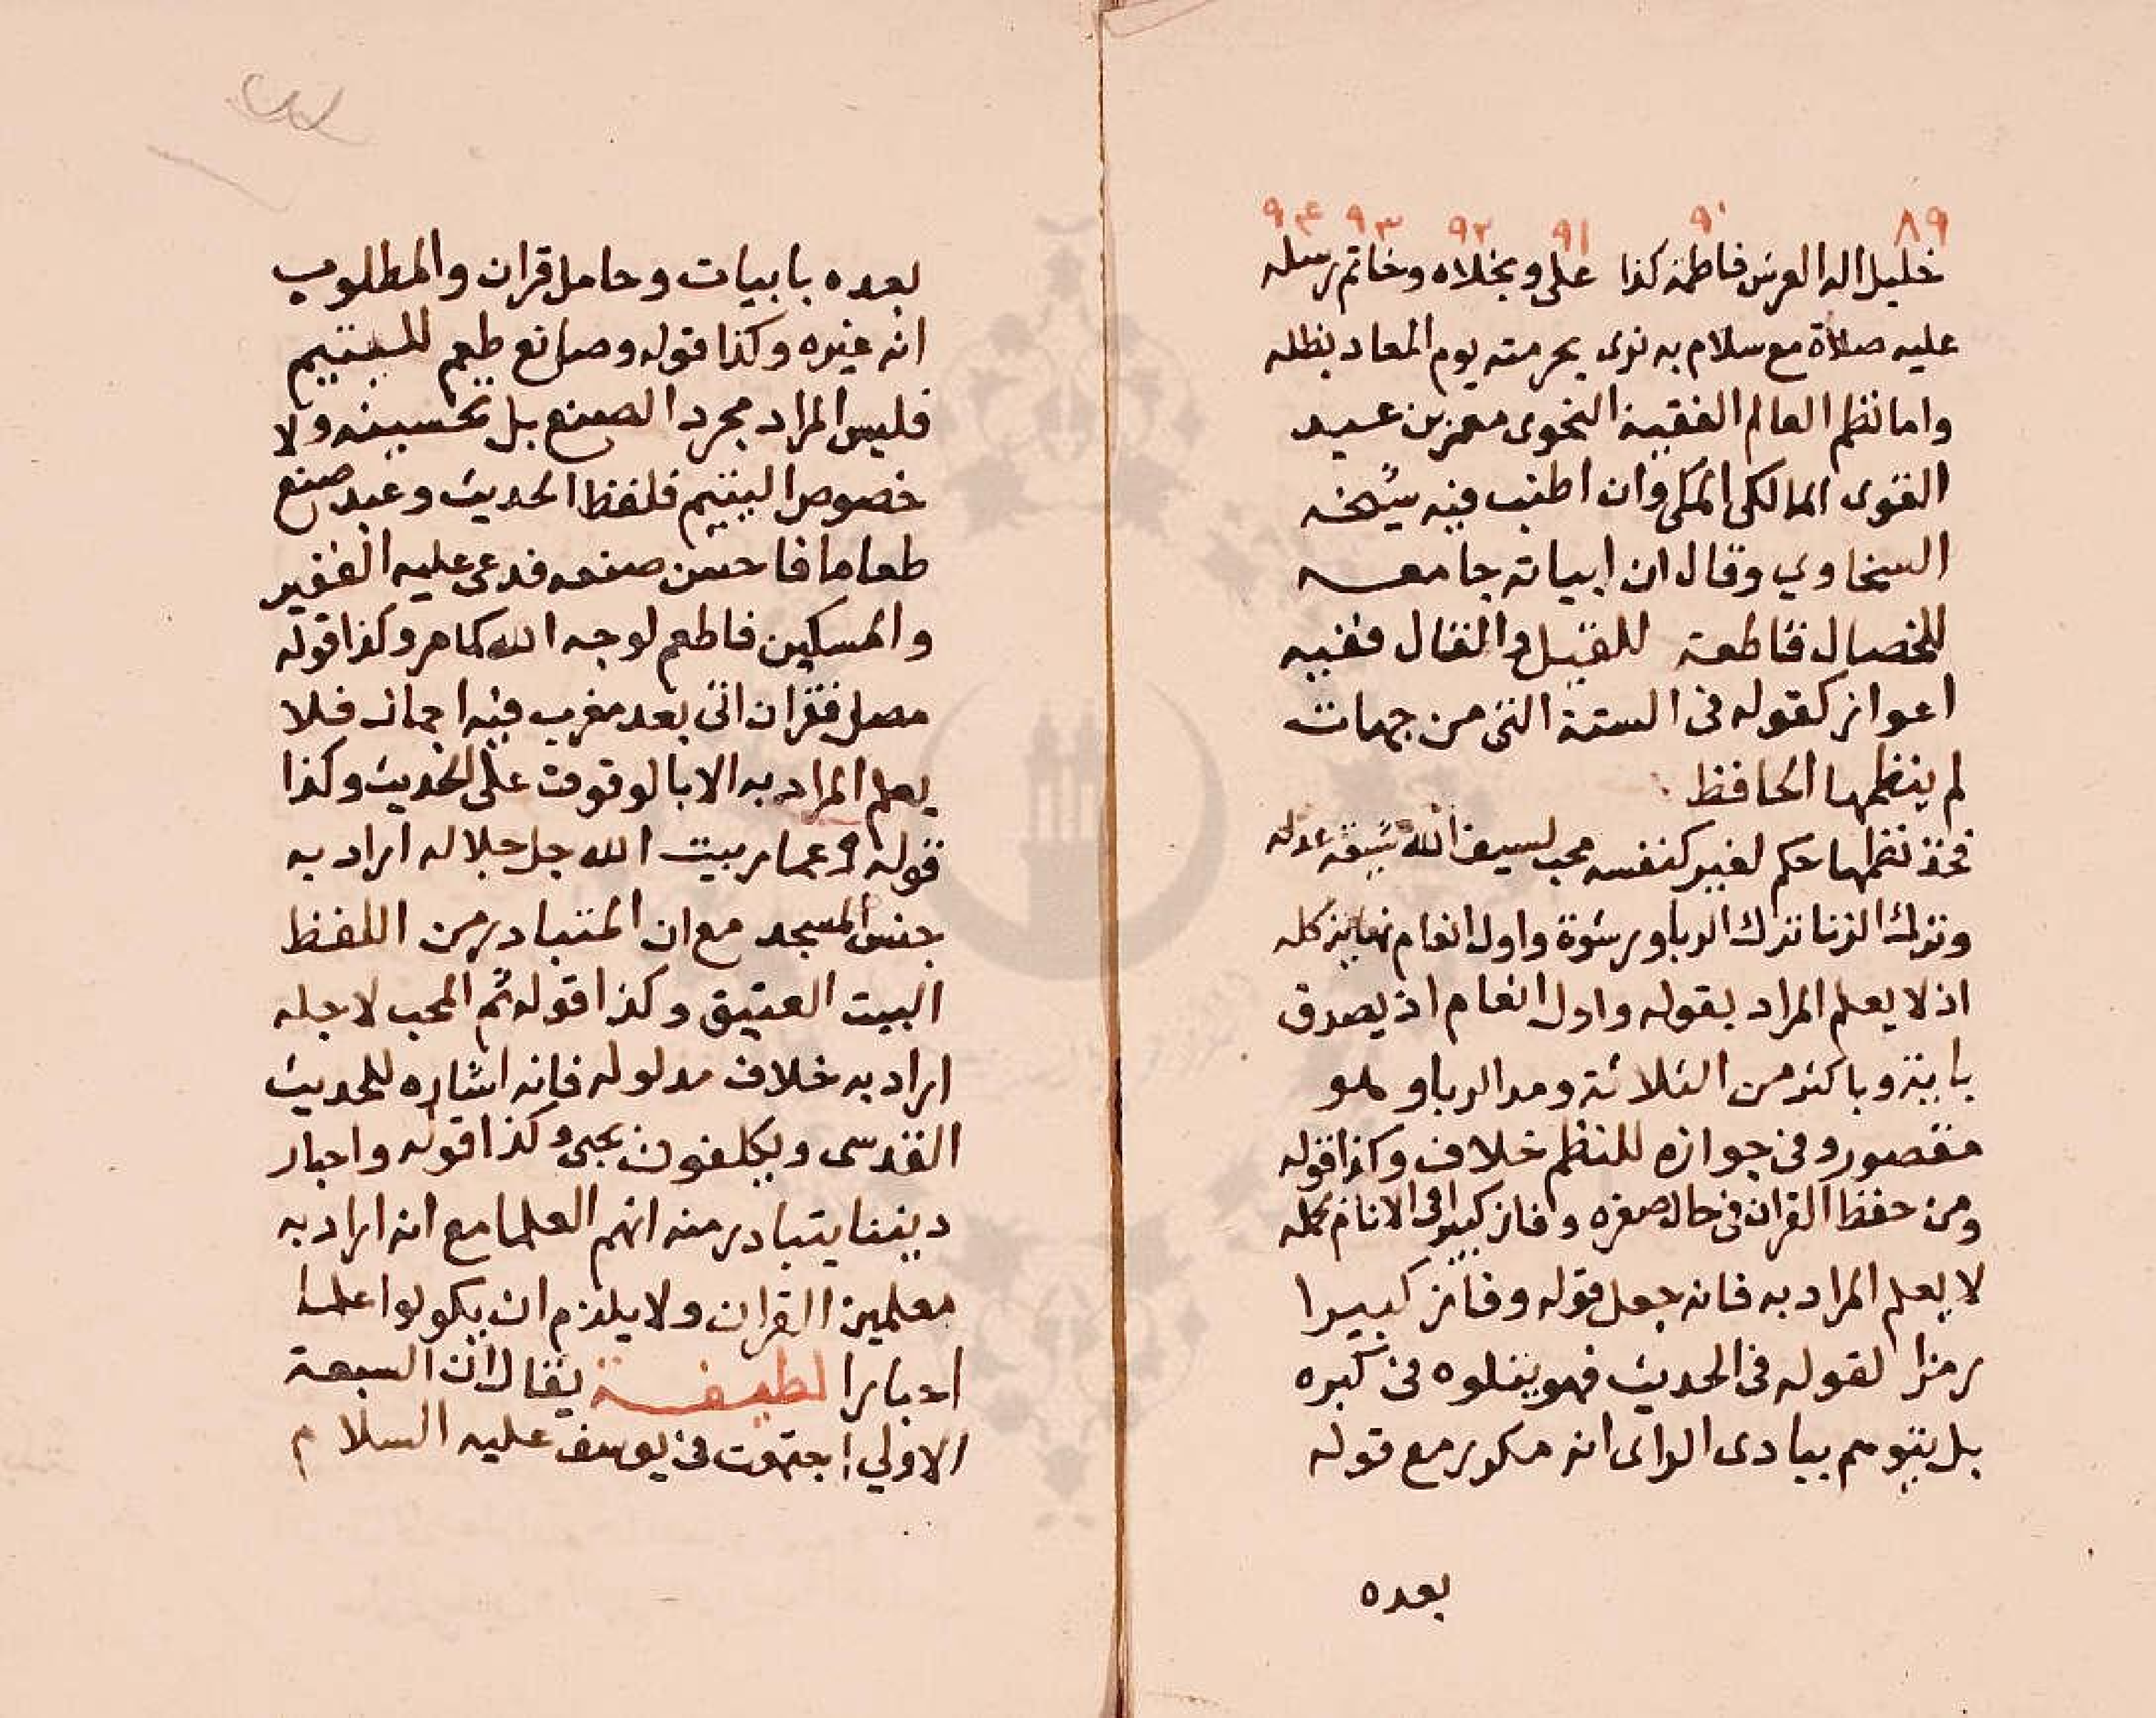 ٨٩ ٩٠ ٩١ ٩٢ ٩٣ ٩٤
خليل اله العرش فاطمة كذا على ونجلاه وخاتم رسله
عليه صلاة مع سلام به نرى بحرمته يوم المعاد بظله
واما نظم العالم الفقيه النحوى معمر بن عبيد
القوى المالكى المكى وان اطنب فيه شيخه
السخاوي وقال ان ابياته جامعه
للخصال قاطعة للقيل والقال ففيه
اعواز كقوله فى الستة التى من جهات
لم ينظمها الحافظ
فخذ نظمها حكم لغير كنفسه محب لسيف الله عدله
وترك الزنا ترك الربا ورشوة واول انعام كله
اذ لا يعلم المراد بقوله واول انعام اذ يصدق
باية وباكثر من الثلاثة ومد الربا وهو
مقصور وفى جوازه للنظم خلاف وكذا قوله
ومن حفظ القران فى حال صغره وفاز كبيرا فى الانام بحمله
لا يعلم المراد به فانه جعل قوله وفاز كبيرا
رمزا لقوله فى الحديث فهو يتلوه فى كبره
بل يتوهم ببادى الراى انه مكرر مع قوله
بعده
بعده بابيات وحامل قران والمطلوب
انه غيره وكذا قوله وصانع طعم لليتيم
فليس المراد مجرد الصنع بل تحسينه ولا
خصوص اليتيم فلفظ الحديث وعبد صنع
طعاما فاحسن صنعه فدعى عليه الفقير
والمسكين فاطعم لوجه الله كما مر وكذا قوله
مصل قران اتى بعد مغرب فيه اجمال فلا
يعلم المراد به الا بالوقوف على الحديث وكذا
قوله وعمار بيت الله جل جلاله اراد به
جنس المسجد مع ان المتبادر من اللفظ
البيت العتيق وكذا قوله ثم المحب لاجله
اراد به خلاف مدلوله فانه اشاره للحديث
القدسى ويكلفون بحبى وكذا قوله واحبار
ديننا يتبادر منه انهم العلما مع انه اراد به
معلمين القران ولا يلزم ان يكونوا علما
احبارا لطيفة يقال ان السبعة
الاولي اجتمعت فى يوسف عليه السلام